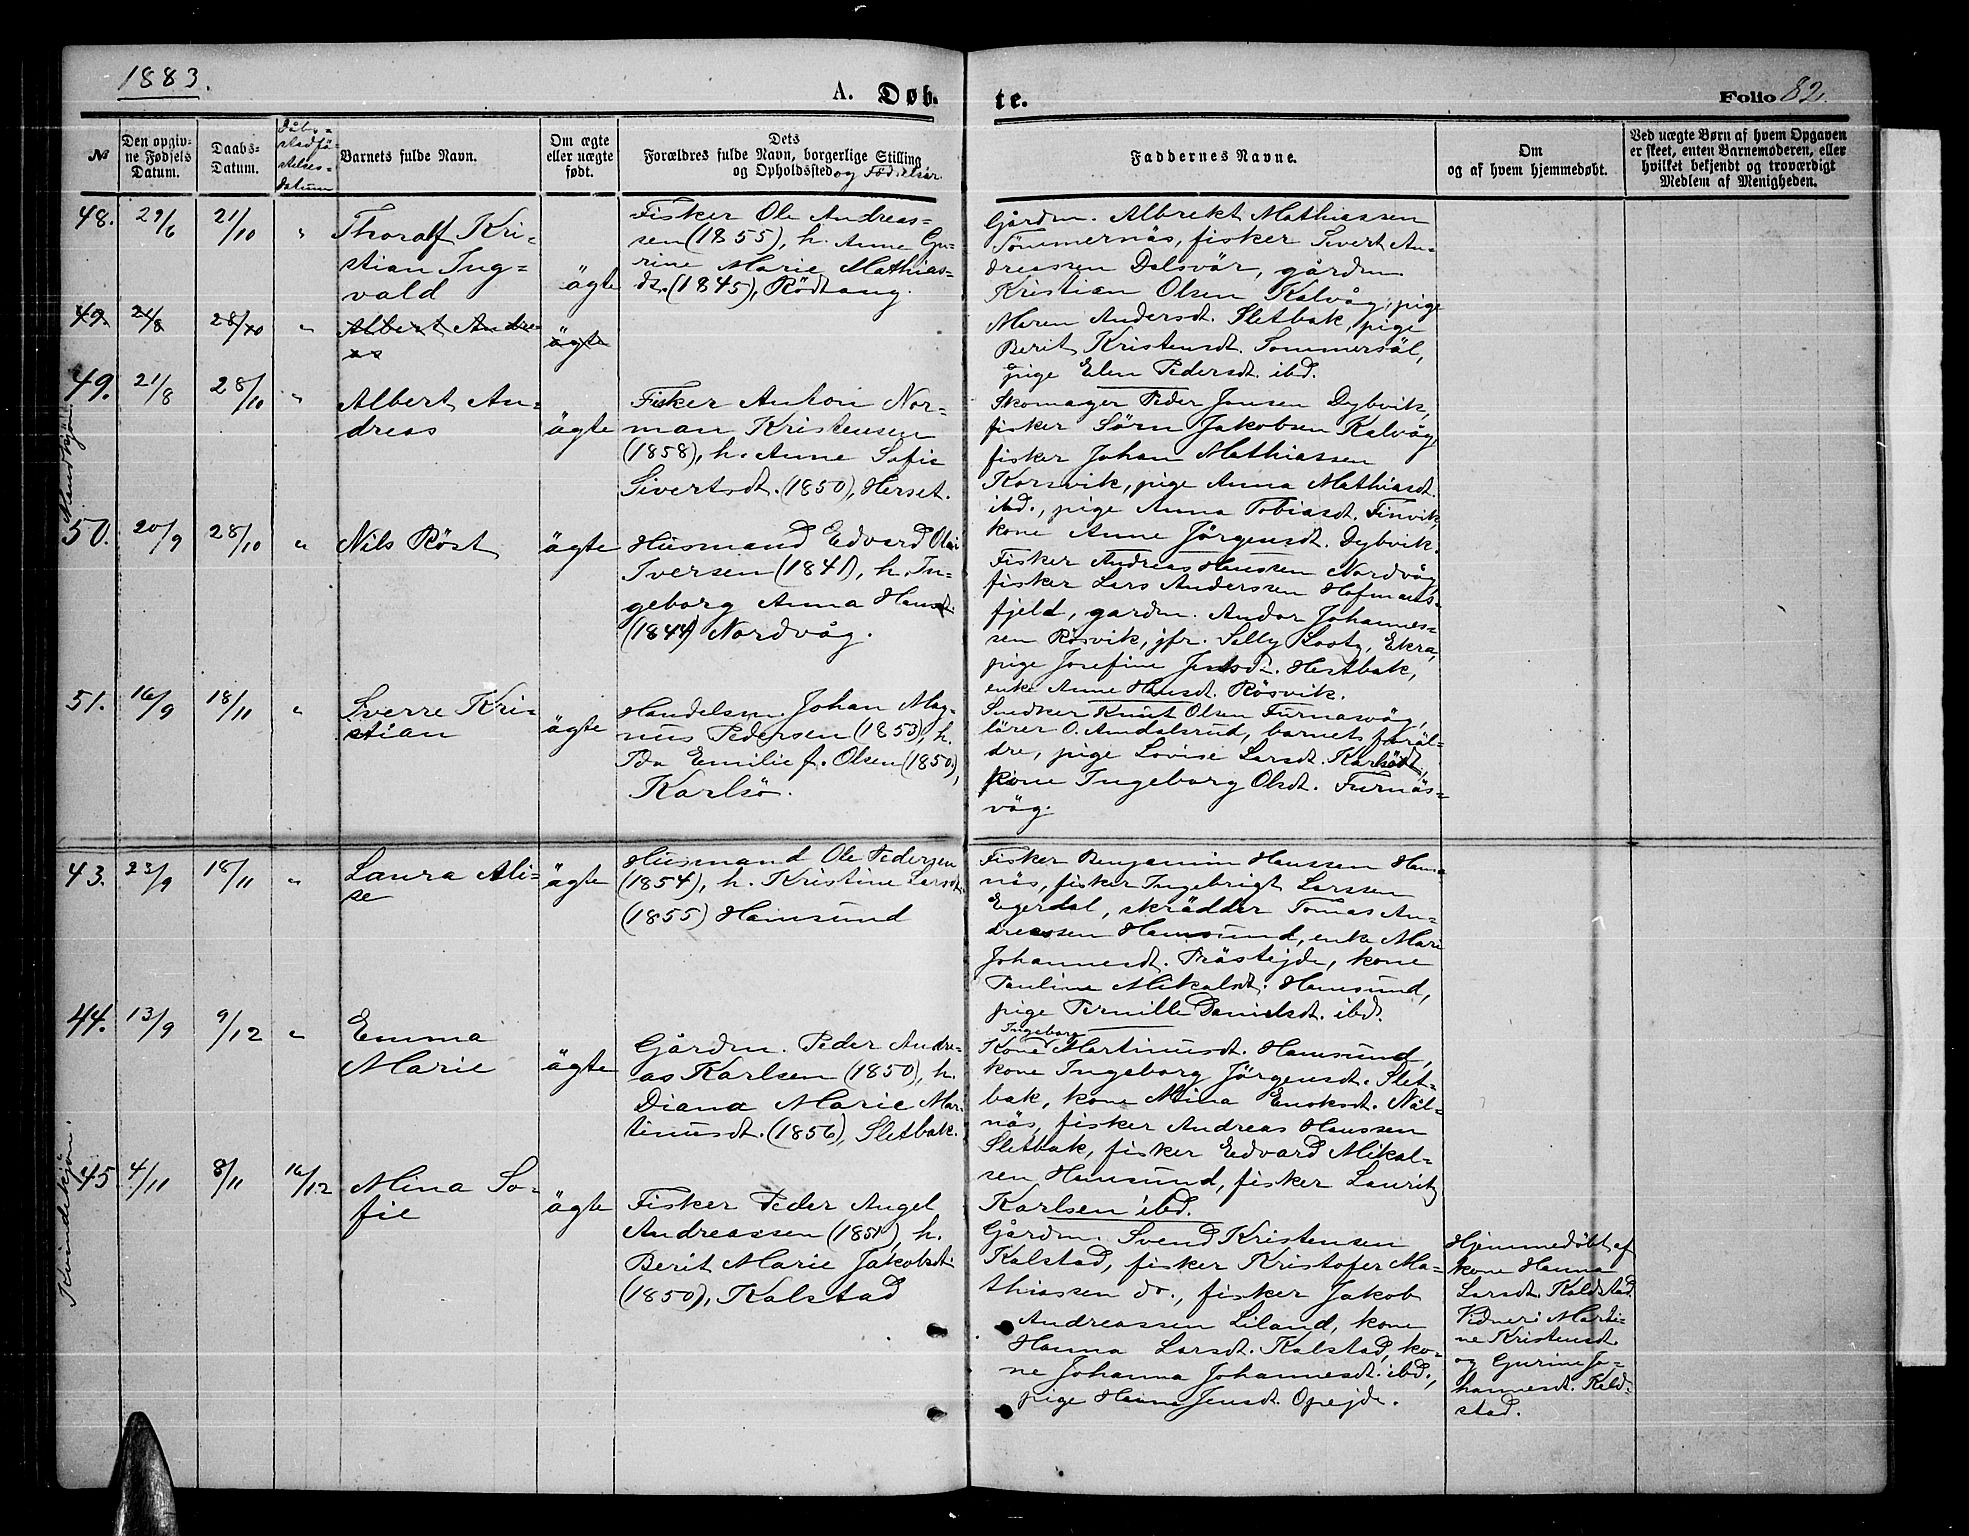 1883.
A. Døb-
te.
Folio 82.
№
Den opgiv-
ne Fødsels
Datum.
Daabs-
Datum.
Dåbs-
stadfä-
stelses-
datum
Barnets fulde Navn.
Om ægte
eller uægte
født.
Dets
Forældres fulde Navn, borgerlige Stilling
og Opholdssted og Födselsår.
Faddernes Navne.
Om
og af hvem hjemmedøbt.
Ved uægte Børn af hvem Opgaven
er skeet, enten Barnemoderen, eller
hvilket bekjendt og troværdigt
Medlem af Menigheden.
Mandkjön.
48. 29/6 21/10 "
Thoralf Kri-
stian Ing-
vald
ägte
Fisker Ole Andreas-
sen (1855), h. Anne Gu-
rine Marie Mathias-
dt. (1845), Rödtang.
Gårdm. Albrekt Mathiassen
Tömmernäs, fisker Sivert An-
dreassen Dalsvär, gårdm
Kristian Olsen Kalvåg, pige
Maren Andersdt. Sletbak, pige
Berit Kristensdt. Sommersäl,
pige Elen Pedersdt. ibd.
49. 21/8 28/10 "
Albert Andre-
as
ägte
49. 21/8 28/10 "
Albert An-
dreas
ägte
Fisker Anton Nor-
man Kristensen
(1858), h. Anne Sofie
Sivertsdt. (1850), Herset.
Skomager Peder Jensen Dybvik,
fisker Sörn Jakobsen Kalvåg,
fisker Johan Mathiassen
Korsvik, pige Anna Mathiasdt.
ibd., pige Anna Tobiasdt. Finvik,
kone Anne Jörgensdt. Dybvik.
50. 20/9 28/10 "
Nils Röst
ägte
Husmand Edvard Olai
Iversen (1841), h. In-
geborg Anna Hansdt.
(1844) Nordvåg.
Fisker Andreas Hansen Nordvåg,
fisker Lars Anderssen Hofmans-
fjeld, gardm. Andor Johannes-
sen Rösvik, jfr. Selly Kooty, Ekra,
pige Josefine Jensdt. Hestbak,
enke Anne Hansdt. Rösvik.
51. 16/9 18/11 "
Sverre Kri-
stian
ägte
Handelsm. Johan Mag-
nus Pedersen (1853), h.
Ida Emilie f. Olsen (1850),
Karlsö.
Snedker Knut Olsen Furnäsvåg,
lärer O. Amdalsrud, barnets foräl-
dre, pige Lovise Larsdt. Karlsöt,
kone Ingeborg Olsdt. Furnäs-
våg.
Kvindekjön.
43. 23/9 18/11 "
Laura Ali-
se
ägte
Husmand Ole Pedersen
(1854), h. Kristine Larsdt.
(1855) Hamsund
Fisker Benjamin Hanssen Ham-
näs, fisker Ingebrigt Larssen
Egerdal, skrädder Tomas An-
dreassen Hamsund, enke Mari
Johannesdt. Prästejde, kone
Pauline Mikalsdt. Hamsund,
pige Pernille Danielsdt. ibd.
44. 13/9 9/12 "
Emma
Marie
ägte
Gårdm. Peder Andre-
as Karlsen (1850), h.
Diana Marie Mar-
tinusdt. (1856), Sletbak.
Ingeborg
Kone Martinusdt. Hamsund,
kone Ingeborg Jörgensdt. Slet-
bak, kone Mina Enoksdt. Näl-
näs, fisker Andreas Hanssen
Sletbak, fisker Edvard Mikal-
sen Hamsund, fisker Laurits
Karlsen ibd.
45 4/11 8/11 16/12
Mina So-
fie
ägte
Fisker Peder Angel
Andreassen (1851), h.
Berit Marie Jakobsdt
(1850), Kalstad
Gårdm. Svend Kristensen
Kalstad, fisker Kristofer Ma-
thiassen do., fisker Jakob
Andreassen Liland, kone
Hanna Larsdt. Kalstad, ko-
ne Johanna Johannesdt. ibd.,
pige Hanna Jensdt. Opejde.
Hjemmedöbt af
kone Hanna
Larsdt. Kaldstad.
Vidner: Marti-
ne Kristensdt.
og Gurine Jo-
hannesdt. Kald-
stad.